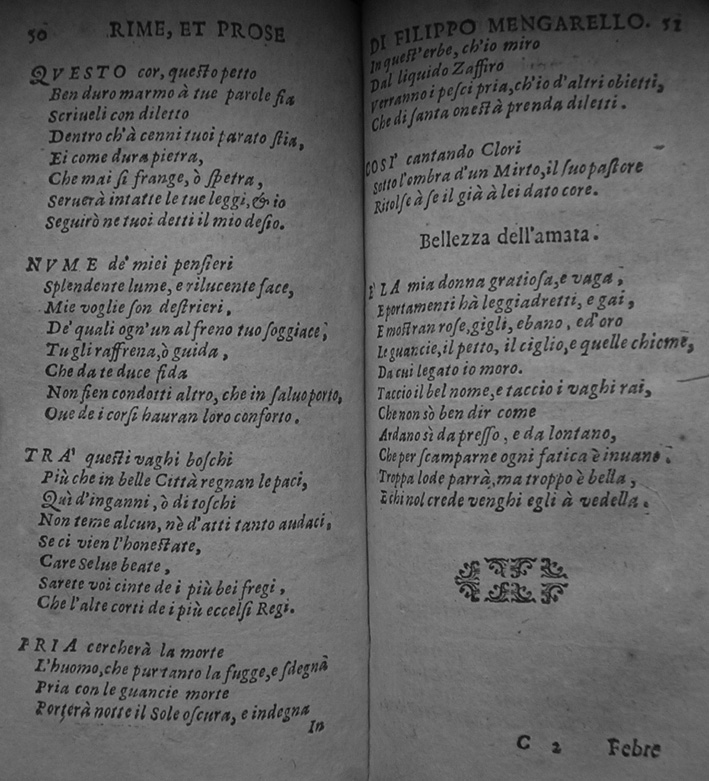 50 RIME, ET PROSE
QVESTO cor, queſto petto
Ben duro marmo à tue parole ſia
Scriueli con diletto
Dentro ch'à cenni tuoi parato ſtia,
Ei come dura pietra,
Che mai ſi frange, ò ſpetra,
Seruerà intatte le tue leggi, & io
Seguirò ne tuoi detti il mio deſio.
NVME de' miei penſieri
Splendente lume, e rilucente face,
Mie voglie ſon deſtrieri,
De' quali ogn'un al freno tuo ſoggiace;
Tu gli raffrena, ò guida,
Che da te duce fida
Non fien condotti altro, che in ſaluo porto,
Oue de i corſi hauran loro conforto.
TRA' queſti vaghi boſchi
Più che in belle Città regnan le paci,
Quì d'inganni, ò di toſchi
Non teme alcun, nè d'atti tanto audaci,
Se ci vien l'honeſtate,
Care Selue beate,
Sarete voi cinte de i più bei fregi,
Che l'alte corti de i più eccelſi Regi.
PRIA cercherà la morte
L'huomo, che pur tanto la fugge, e ſdegna
Pria con le guancie morte
Porterà notte il Sole oſcura, e indegna
In
DI FILIPPO MENGARELLO. 51
In queſt'erbe, ch'io miro
Dal liquido Zaffiro
Verranno i peſci pria, ch'io d'altri obietti,
Che di ſanta oneſtà prenda diletti.
COSI' cantando Clori
Sotto l'ombra d'un Mirto, il ſuo paſtore
Ritolſe à ſe il già à lei dato core.
Bellezza dell'amata.
E' LA mia donna gratioſa, e vaga,
E portamenti hà leggiadretti, e gai,
E moſtran roſe, gigli, ebano, ed'oro
Le guancie, il petto, il ciglio, e quelle chiome,
Da cui legato io moro.
Taccio il bel nome, e taccio i vaghi rai,
Che non sò ben dir come
Ardano sì da preſſo, e da lontano,
Che per ſcamparne ogni fatica è inuano.
Troppa lode parrà, ma troppo è bella,
E chi nol crede venghi egli à vedella.
C 2 Febre